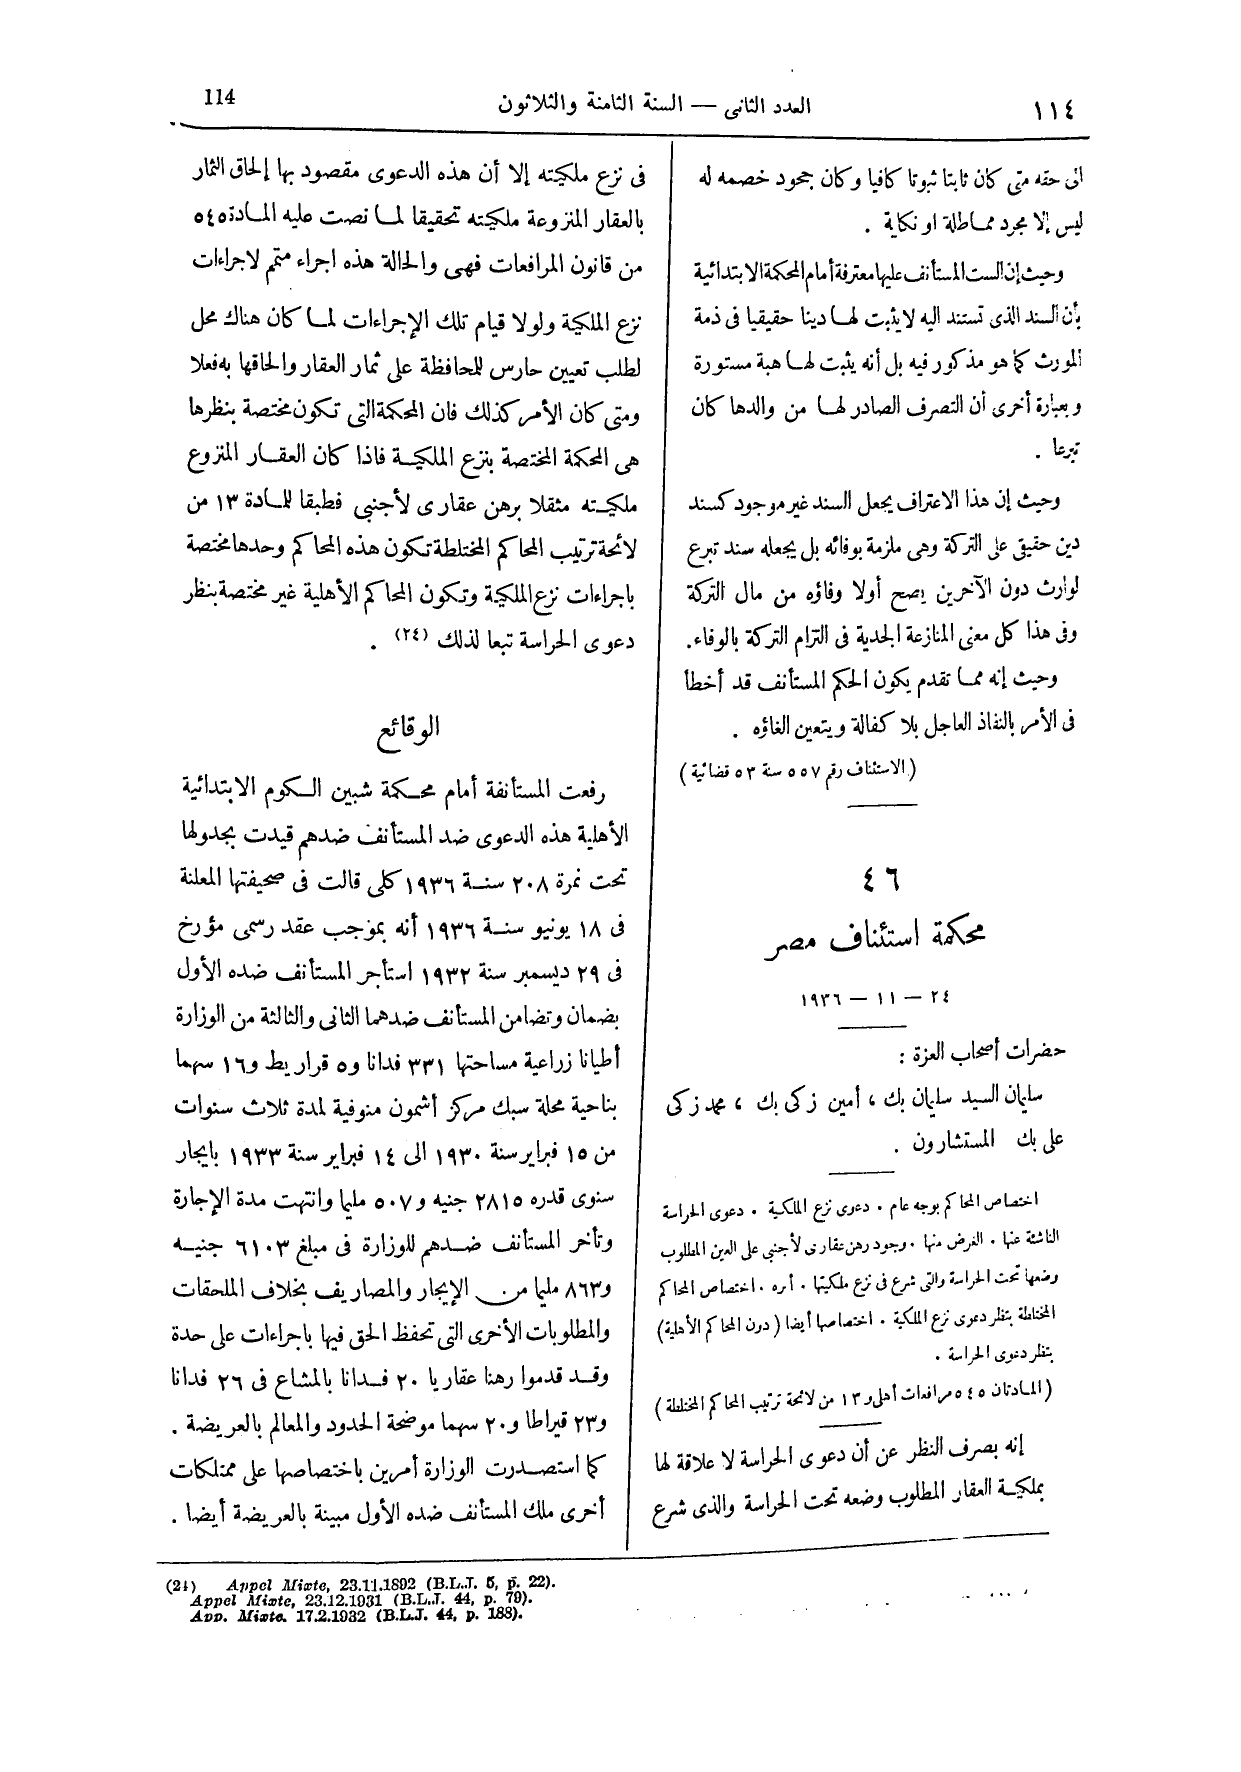 ١١٤
العدد الثانى — السنة الثامنة والثلاثون
114
الى حقه متى كان ثابتا ثبوتا كافيا وكان جحود خصمه له
ليس إلا مجرد مماطلة او نكاية .
وحيث إن الست المستأنف عليها معترفة أمام المحكمة الابتدائية
بأن السند الذى تستند اليه لا يثبت لها دينا حقيقيا فى ذمة
المورث كما هو مذكور فيه بل أنه يثبت لها هبة مستورة
وبعبارة أخرى أن التصرف الصادر لها من والدها كان
تبرعا .
وحيث إن هذا الاعتراف يجعل السند غير موجود كسند
دين حقيقى على التركة وهى ملزمة بوفائه بل يجعله سند تبرع
لوارث دون الآخرين يصح أولا وفاؤه من مال التركة
وفى هذا كل معنى المنازعة الجدية فى التزام التركة بالوفاء.
وحيث إنه مما تقدم يكون الحكم المستأنف قد أخطأ
فى الأمر بالنفاذ العاجل بلا كفالة ويتعين الغاؤه .
(الاستئناف رقم ٥٥٧ سنة ٥٣ قضائية)
٤٦
محكمة استئناف مصر
٢٤ — ١١ — ١٩٣٦
حضرات أصحاب العزة :
سليمان السيد سليمان بك ، أمين زكى بك ، محمد زكى
على بك المستشارون .
اختصاص المحاكم بوجه عام . دعوى نزع الملكية . دعوى الحراسة
الناشئة عنها . الغرض منها . وجود رهن عقارى لأجنبى على العين المطلوب
وضعها تحت الحراسة والتى شرع فى نزع ملكيتها . أثره . اختصاص المحاكم
المختلطة بنظر دعوى نزع الملكية . اختصاصها أيضا (دون المحاكم الأهلية)
بنظر دعوى الحراسة .
(المادتان ٥٤٥ مرافعات أهلى و ١٣ من لائحة ترتيب المحاكم المختلطة)
إنه بصرف النظر عن أن دعوى الحراسة لا علاقة لها
بملكية العقار المطلوب وضعه تحت الحراسة والذى شرع
فى نزع ملكيته إلا أن هذه الدعوى مقصود بها إلحاق الثمار
بالعقار المنزوعة ملكيته تحقيقا لما نصت عليه المادة ٥٤٥
من قانون المرافعات فهى والحالة هذه اجراء متمم لاجراءات
نزع الملكية ولولا قيام تلك الإجراءات لما كان هناك محل
لطلب تعيين حارس للمحافظة على ثمار العقار والحاقها به فعلا
ومتى كان الأمر كذلك فان المحكمة التى تكون مختصة بنظرها
هى المحكمة المختصة بنزع الملكية فاذا كان العقار المنزوع
ملكيته مثقلا برهن عقارى لأجنبى فطبقا للمادة ١٣ من
لائحة ترتيب المحاكم المختلطة تكون هذه المحاكم وحدها مختصة
باجراءات نزع الملكية وتكون المحاكم الأهلية غير مختصة بنظر
دعوى الحراسة تبعا لذلك (٢٤) .
الوقائع
رفعت المستأنفة أمام محكمة شبين الكوم الابتدائية
الأهلية هذه الدعوى ضد المستأنف ضدهم قيدت بجدولها
تحت نمرة ٢٠٨ سنة ١٩٣٦ كلى قالت فى صحيفتها المعلنة
فى ١٨ يونيو سنة ١٩٣٦ أنه بموجب عقد رسمى مؤرخ
فى ٢٩ ديسمبر سنة ١٩٣٢ استأجر المستأنف ضده الأول
بضمان وتضامن المستأنف ضدهما الثانى والثالثة من الوزارة
أطيانا زراعية مساحتها ٣٣١ فدانا و٥ قراريط و١٦ سهما
بناحية محلة سبك مركز أشمون منوفية لمدة ثلاث سنوات
من ١٥ فبراير سنة ١٩٣٠ الى ١٤ فبراير سنة ١٩٣٣ بايجار
سنوى قدره ٢٨١٥ جنيه و ٥٠٧ مليما وانتهت مدة الإجارة
وتأخر المستأنف ضدهم للوزارة فى مبلغ ٦١٠٣ جنيه
و٨٦٣ مليما من الإيجار والمصاريف بخلاف الملحقات
والمطلوبات الأخرى التى تحفظ الحق فيها باجراءات على حدة
وقد قدموا رهنا عقاريا ٢٠ فدانا بالمشاع فى ٢٦ فدانا
و٢٣ قيراطا و٢٠ سهما موضحة الحدود والمعالم بالعريضة .
كما استصدرت الوزارة أمرين باختصاصها على ممتلكات
أخرى ملك المستأنف ضده الأول مبينة بالعريضة أيضا .
(24) Appel Mixte, 23.11.1892 (B.L.J. 5, p. 22).
Appel Mixte, 23.12.1931 (B.L.J. 44, p. 79).
App. Mixte. 17.2.1932 (B.L.J. 44, p. 188).